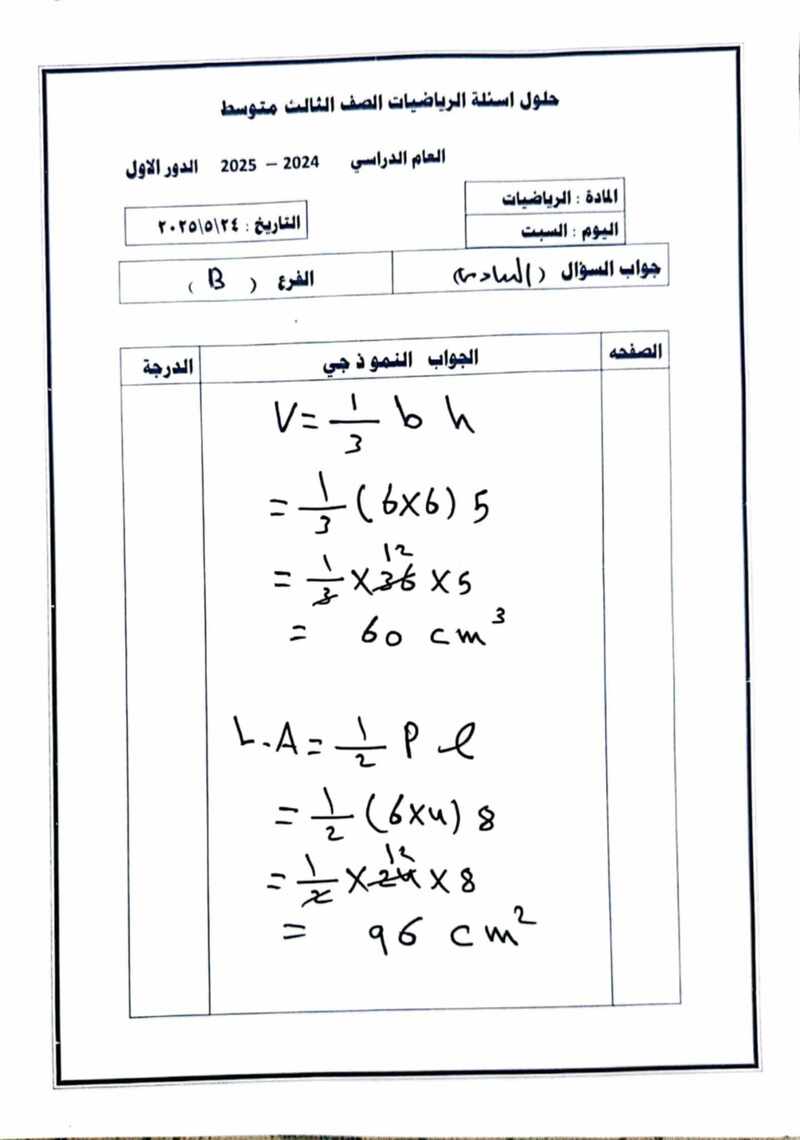 حلول اسئلة الرياضيات الصف الثالث متوسط
العام الدراسي 2024 – 2025 الدور الاول
المادة : الرياضيات
اليوم : السبت
التاريخ : ٢٠٢٥/٥/٢٤
جواب السؤال (السادس)
الفرع ( B )
الصفحه الجواب النموذجي الدرجة
V = 1/3 b h
= 1/3 (6×6) 5
= 1/3 × 36 × 5
12
= 60 cm³
L.A = 1/2 P ℓ
= 1/2 (6×4) 8
= 1/2 × 24 × 8
12
= 96 cm²